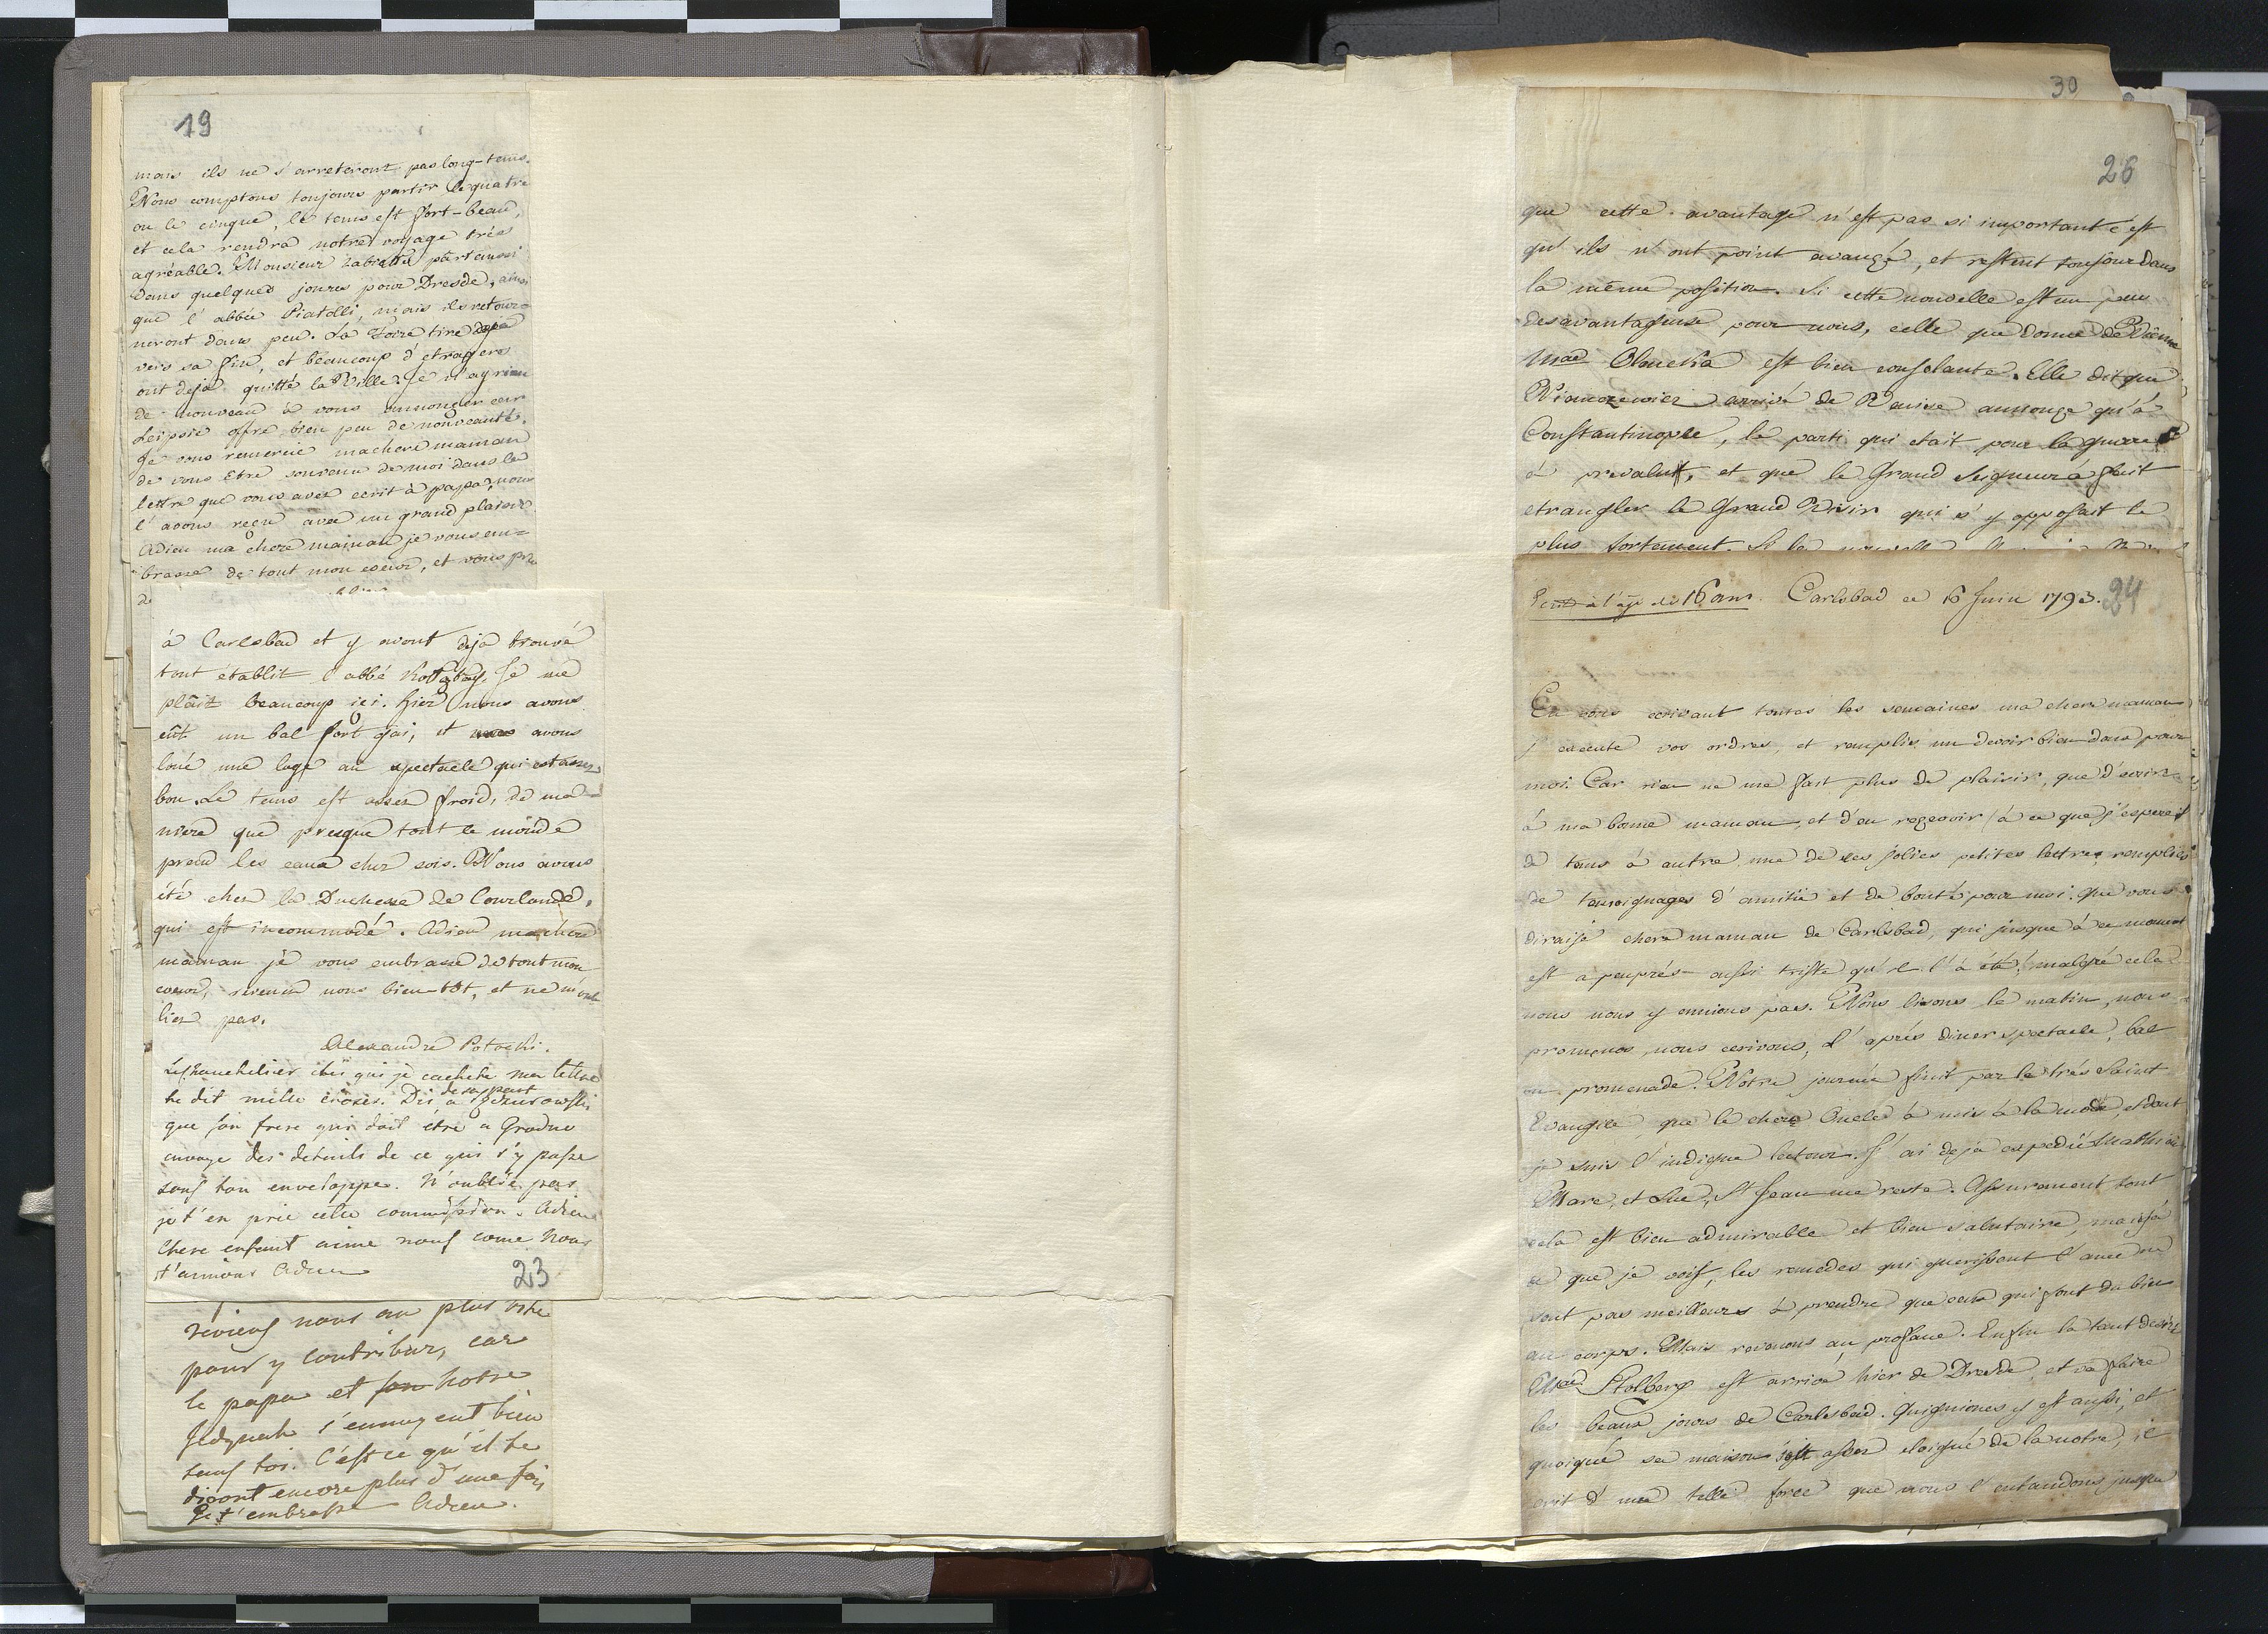 19
mais ils ne s'arreteront pas long-tems.
Nous comptons toujours partir le quatre
ou le cinque, le tems est fort-beau,
et cela rendra notre voyage très
agréable. Monsieur Zabiello part aussi
dans quelques jours pour Dresde, ainsi
que l'abbée Piatolli, mais ils retour=
neront dans peu. La Foire tire
vers sa fin, et beaucoup d'etragers
ont deja quitté la Ville. Je n'ay rien
de nouveau à vous annonçer car
Leipsic offre bien peu de nouveauté.
Je vous remercie ma chere maman
de vous etre souvenu de moi dans la
lettre que vous avez ecrit à papa, nous
l'avons reçu avec un grand plaisir.
Adieu ma chere maman je vous em=
brasse de tout mon coeur, et vous prie
de
à Carlsbad et y avont deja trouvé
tout établit l'abbé Je me
plait beaucoup ici. Hier nous avons
eût un bal fort gai, et avons
loué une loge au spectacle qui est assez
bon. Le tems est assez froid, de ma=
niere que presque tout le monde
prend les eaux chez sois. Nous avons
été chez la Duchesse de Courlande,
qui est incommodé. Adieu ma chere
maman je vous embrasse de tout mon
coeur, revenez nous bien-tôt, et ne m'oub
liez pas.
Alexandre Potocki.
ici qui je cachete ma lettre
te dit mille choses. Dis de sa part à
que son frere qui doit être a Grodno
envoye des details de ce qui s'y passe
sous ton enveloppe. N'oublie pas
je t'en prie cette commission. Adieu
Chere enfant aime nous come nous
t'aimons Adieu
23
reviens nous au plus vite
pour y contribuer, car
le papa et notre
s'ennuyent bien
sans toi. C'est ce qu'il te
diront encore plus d'une fois
Je t'embrasse Adieu.
30
26
que cette avantage n'est pas si important c'est
qu'ils n'ont point avançé, et restent toujour dans
la même position. Si cette nouvelle est un peu
desavantageuse pour nous, celle que donne de Vienne
Mad est bien consolante. Elle dit que
arrivé de Venise annonçe qu'à
Constantinople, le parti qui etait pour la guerre
à prevalut, et que le Grand Seigneur à fait
etrangler le Grand Visir qui s'y opposait le
plus fortement. Si la nouvelle
Ecrit à l'age de 16 ans. Carlsbad ce 16 Juin 1793. 24
En vous ecrivant toutes les semaines ma chere maman
j'execute vos ordres, et remplis un devoir bien doux pour
moi. Car rien ne me fait plus de plaisir, que d'ecrire
à ma bonne maman, et d'en reçevoir (à ce que j'espere)
de tems à autre une de ses jolies petites lettres remplies
de temoignages d'amitié et de bonté pour moi. Que vous
diraije chere maman de Carlsbad, qui jusque à ce moment
est a peuprés aussi triste qu'il l'à été; malgré cela
nous nous y ennions pas. Nous lisons le matin, nous
promenons nous ecrivons, l'aprés diner spectacle, bal
ou promenade. Notre journée finit par le trés Saint
Evangile, que le chere Oncle à mis à la mode, et dont
je suis l'indigne lecteur. J'ai deja expedié Mathieu
Marc, et Luc, St Jean me reste. Assurement tout
cela est bien admirable et bien salutaire, mais à
ce que je vois, les remedes qui guerissent l'ame ne
sont pas meilleurs à prendre que ceux qui font du bien
au corps. Mais revenons au profane. Enfin la tant desiré
Mad. Stolberg est arrivé hier de Dresde, et va faire
les beaux jours de Carlsbad. Quiguiones y est aussi, et
quoique sa maison soit assez eloigné de la notre, il
crit d'une telle force que nous l'entendons jusque